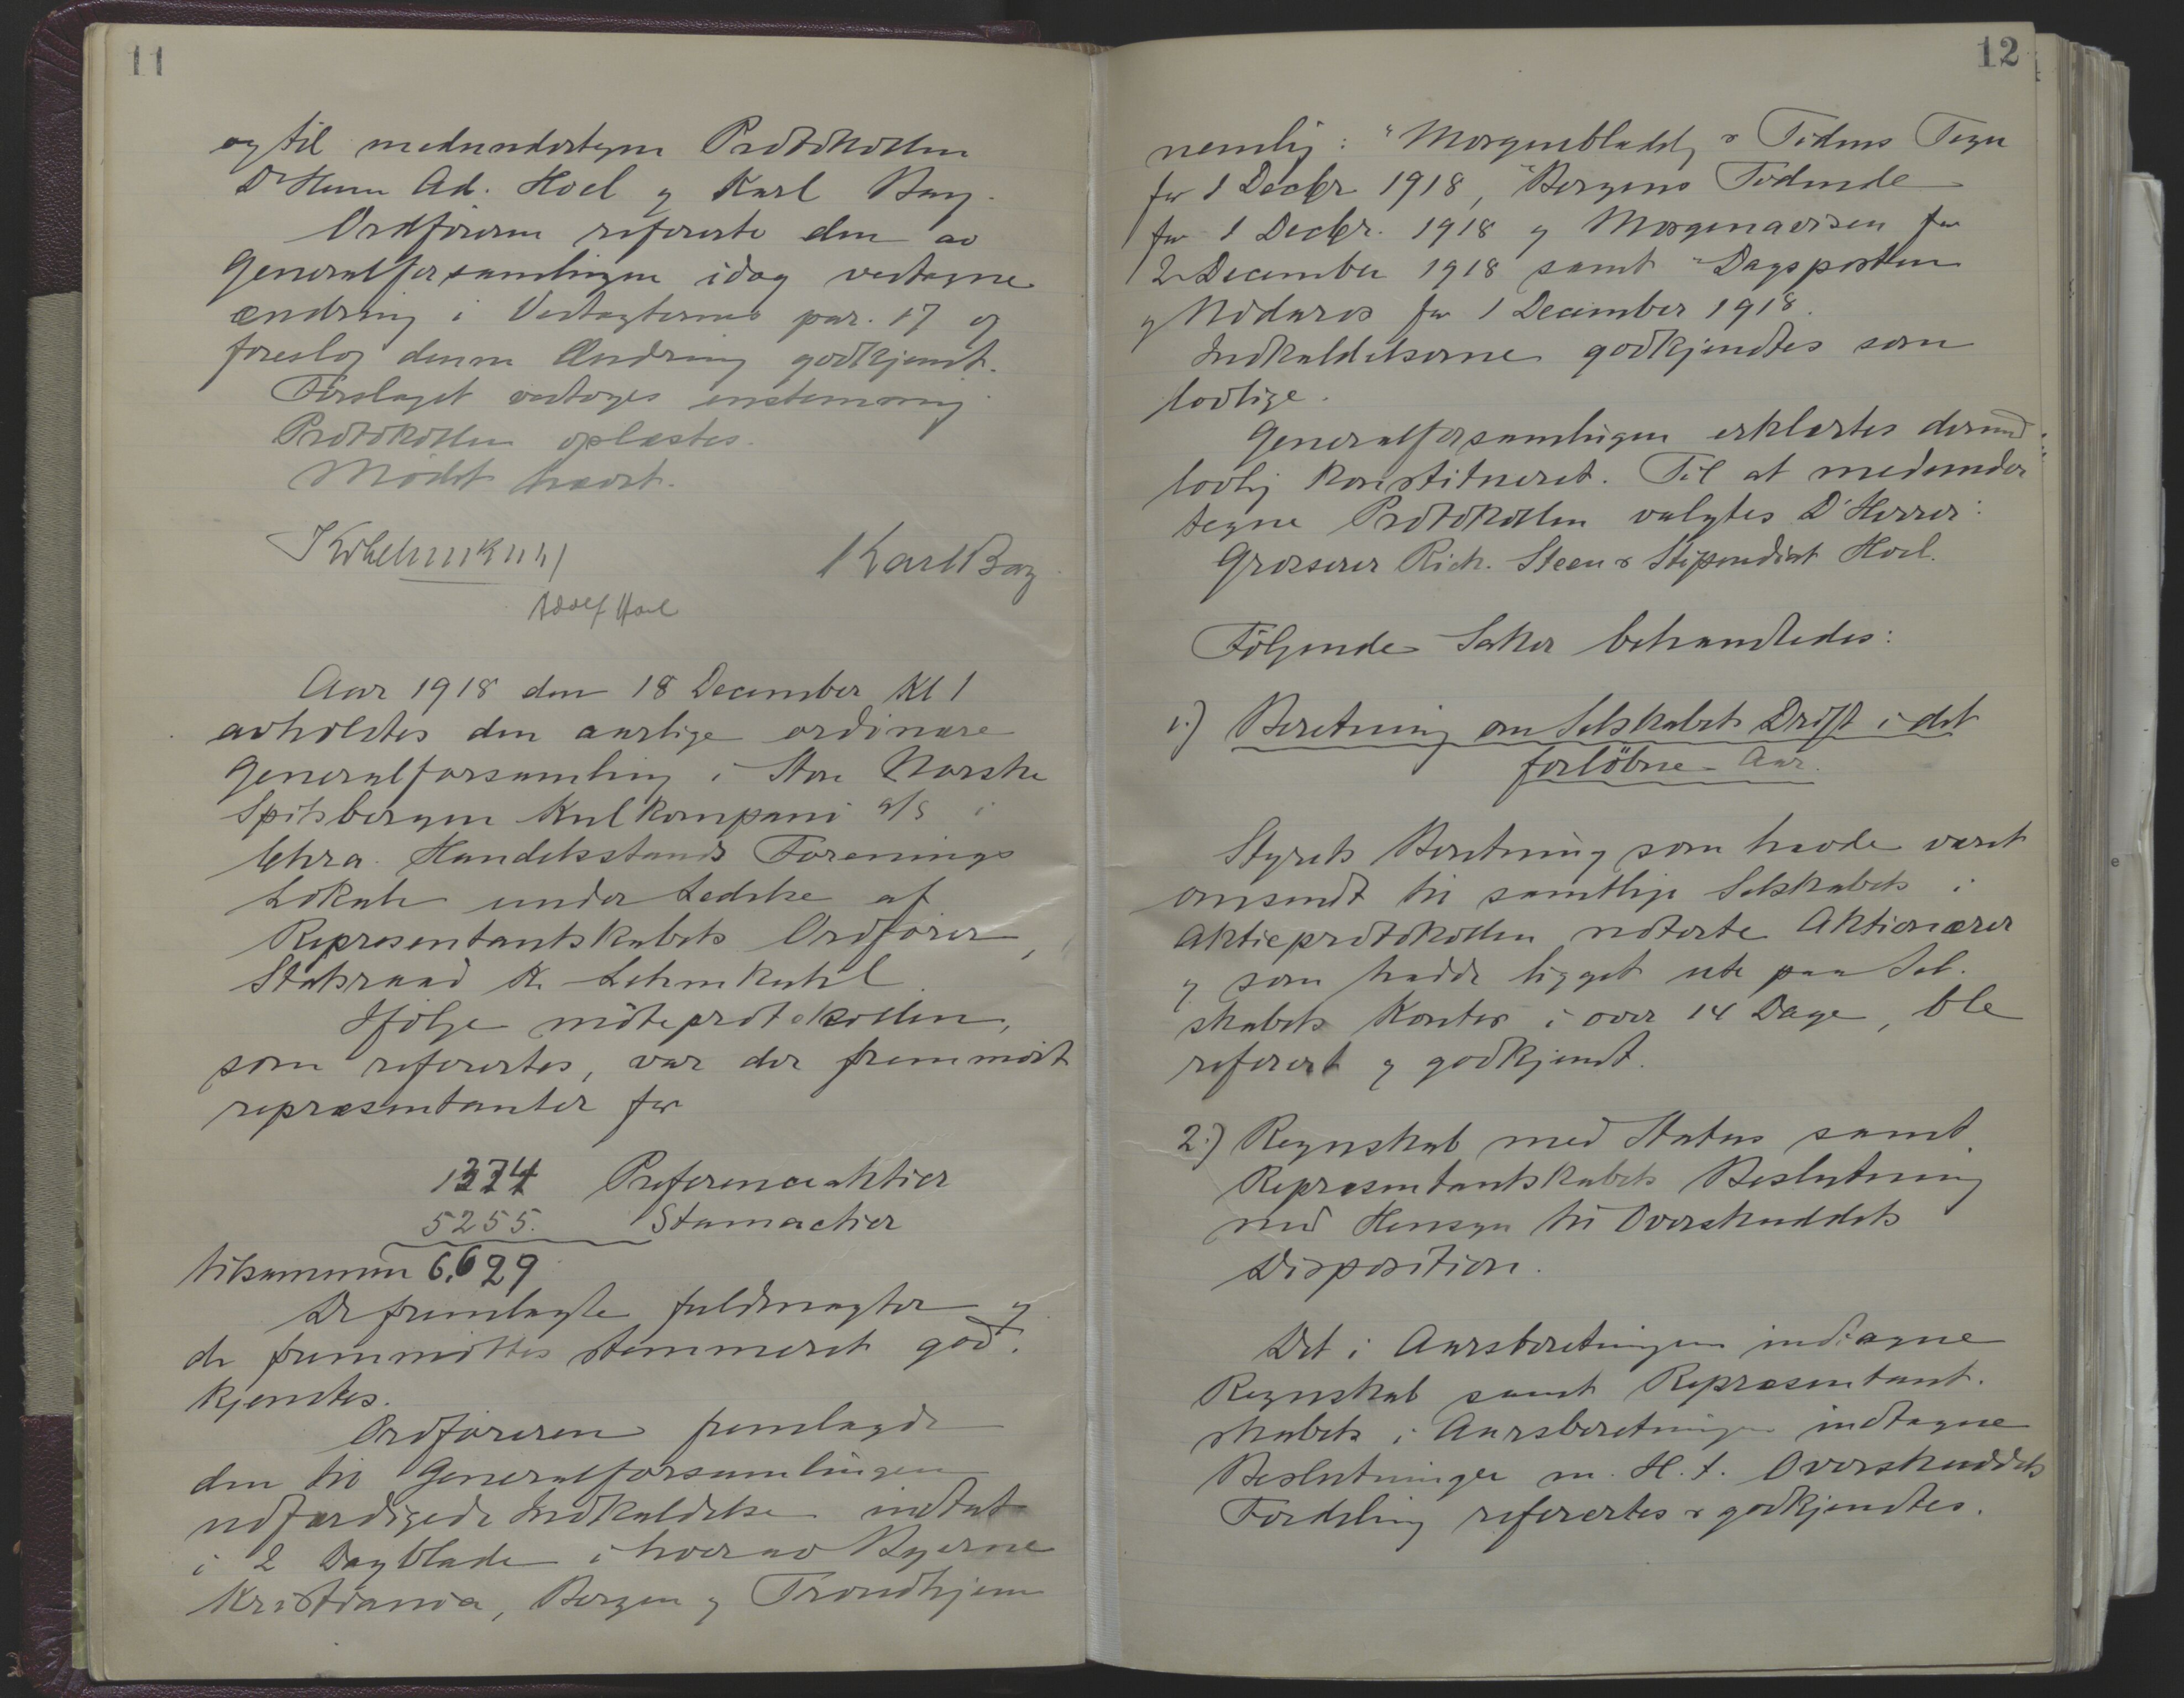 11
og til medundertegne Protokollen
D'Herrer Ad. Hoel og Karl Bay.
Ordföreren refererte den av
Generalforsamlingen idag vedtagne
ændring i Vedtægternes par. 17 og
foreslog denne Ændring godkjendt.
Forslaget vedtoges enstemmig.
Protokollen oplæstes.
Mödet hævet.
KLehmkuhl
Karl Bay
Adolf Hoel
Aar 1918 den 18 December Kl 1
avholdtes den aarlige ordinære
Generalforsamling i Store Norske
Spitsbergen Kulkompani A/S i
Chra. Handelsstands Forenings
Lokale under Ledelse af
Repræsentantskabets Ordförer,
Statsraad K. Lehmkuhl.
Ifölge möteprotokollen,
som refertes, var der fremmöt
repræsentanter for
1374 Preferenceaktier
5255. Stamactier
tilsammen 6.629
De fremlagte fuldmagter og
de fremmöttes stemmeret god-
kjendtes.
Ordföreren fremlagde
den til Generalforsamlingen
udfærdigede Indkaldelse indtat
i 2 Dagblade i hver av Byerne
Kristiania, Bergen og Trondhjem
12
nemlig: "Morgenbladet & Tidens Tegn
for 1 Decbr 1918, "Bergens Tidende
for 1 Decbr. 1918 og Morgenavisen for
2 December 1918 samt "Dagsposten
og Nidaros for 1 December 1918.
Indkaldelserne godkjendtes som
lovlige.
Generalforsamlingen erklærtes derved
lovlig konstitueret. Til at medunder
tegne Protokollen valgtes D'Herrer:
Grosserer Rich. Steen & Stipendiat Hoel.
Fölgende Saker behandledes:
1.) Beretning om Selskabets Drift i det
forlöbne Aar.
Styrets Beretning som havde været
omsendt til samtlige Selskabets i
Aktieprotokollen noterte Aktionærer
og som hadde ligget ute paa Sel-
skabets Kontor i over 14 Dage, ble
referert og godkjendt.
2.) Regnskab med Status samt
Repræsentantskabets Beslutning
med Hensyn til Overskuddets
Disposition.
Det i Aarsberetningen indtagne
Regnskab samt Repræsentant-
skabets i Aarsberetningen indtagne
Beslutninger m. H. t. Overskuddets
Fordeling refertes & godkjendtes.